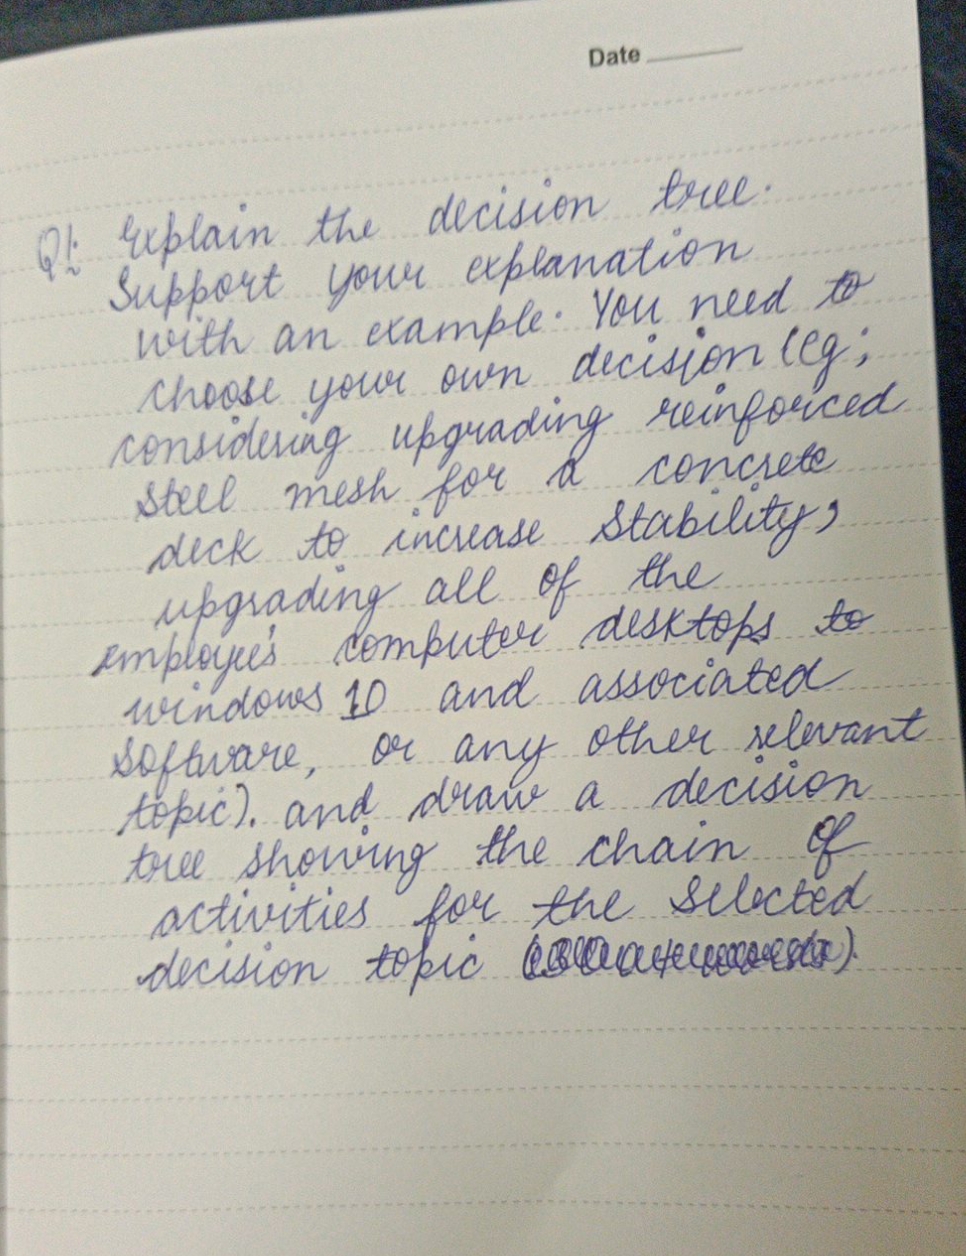 Date
Q1: Explain the decision tree.
Support your explanation
with an example. You need to
choose your own decision (eg;
considering upgrading reinforced
steel mesh for a concrete
deck to increase stability,
upgrading all of the
employee's computer desktops to
windows 10 and associated
software, or any other relevant
topic). and draw a decision
tree showing the chain of
activities for the selected
decision topic